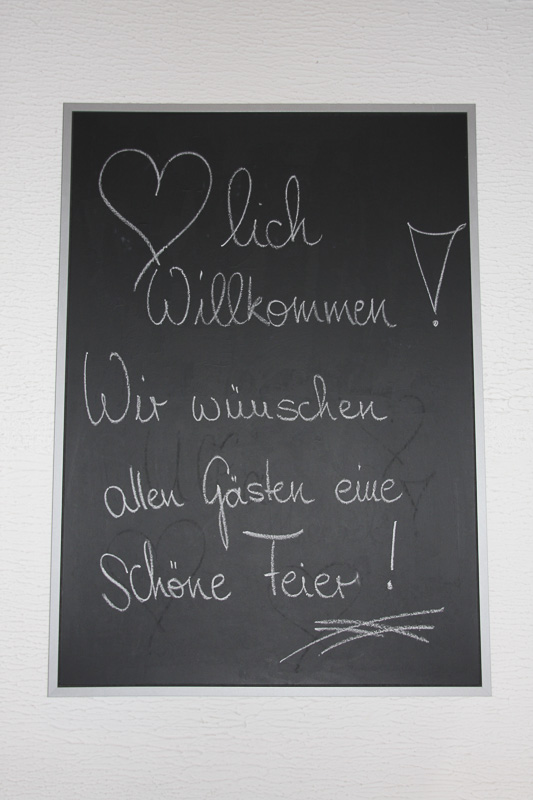 ♡lich
Willkommen !
Wir wünschen
allen Gästen eine
Schöne Feier!